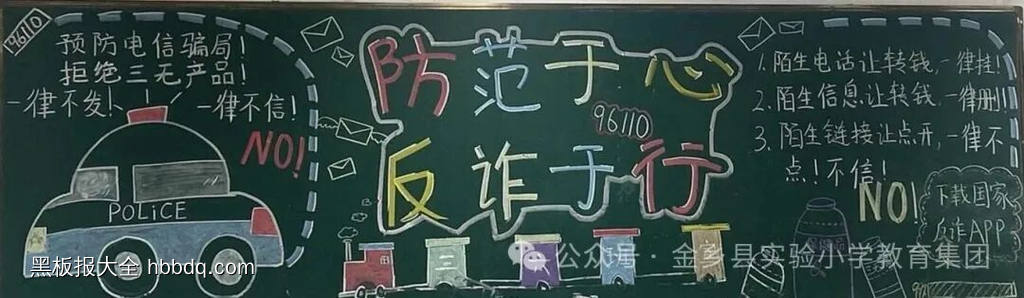 96110
预防电信骗局!
拒绝三无产品!
一律不发!
一律不信!
NO!
POLiCE
防范于心
96110
反诈于行
三
1.陌生电话让转钱,一律挂!
2.陌生信息让转钱,一律删!
3.陌生链接让点开,一律不
点!不信!
NO!
下载国家
反诈APP
黑板报大全 hbbdq.com
公众号·金乡县实验小学教育集团